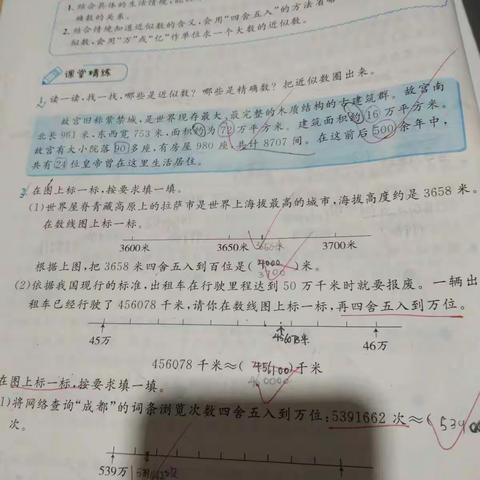 1. 结合具体的生活情境,
确数的关系。
2. 结合情境知道近似数的含义,会用“四舍五入”的方法省略
似数,会用“万”或“亿”作单位求一个大数的近似数。
课堂精练
1. 读一读,找一找,哪些是近似数?哪些是精确数?把近似数圈出来。
故宫旧称紫禁城,是世界现存最大、最完整的木质结构的古建筑群。故宫南
北长 961 米、东西宽 753 米,面积约为 72 万平方米。建筑面积约 16 万平方米。
故宫有大小院落 90 多座,有房屋 980 座,共计 8707 间。在这前后 500 余年中,
共有 24 位皇帝曾在这里生活居住。
在图上标一标,按要求填一填。
(1)世界屋脊青藏高原上的拉萨市是世界上海拔最高的城市,海拔高度约是 3658 米。
在数线图上标一标。
3600米 3650米 3658米 3700米
根据上图,把 3658 米四舍五入到百位是( 3700 )米。
(2)依据我国现行的标准,出租车在行驶里程达到 50 万千米时就要报废。一辆出
租车已经行驶了 456078 千米,请你在数线图上标一标,再四舍五入到万位。
45万 456078米 46万
456078 千米≈( 460000 )千米
在图上标一标,按要求填一填。
1)将网络查询“成都”的词条浏览次数四舍五入到万位:5391662 次≈( 53900
次。
539万